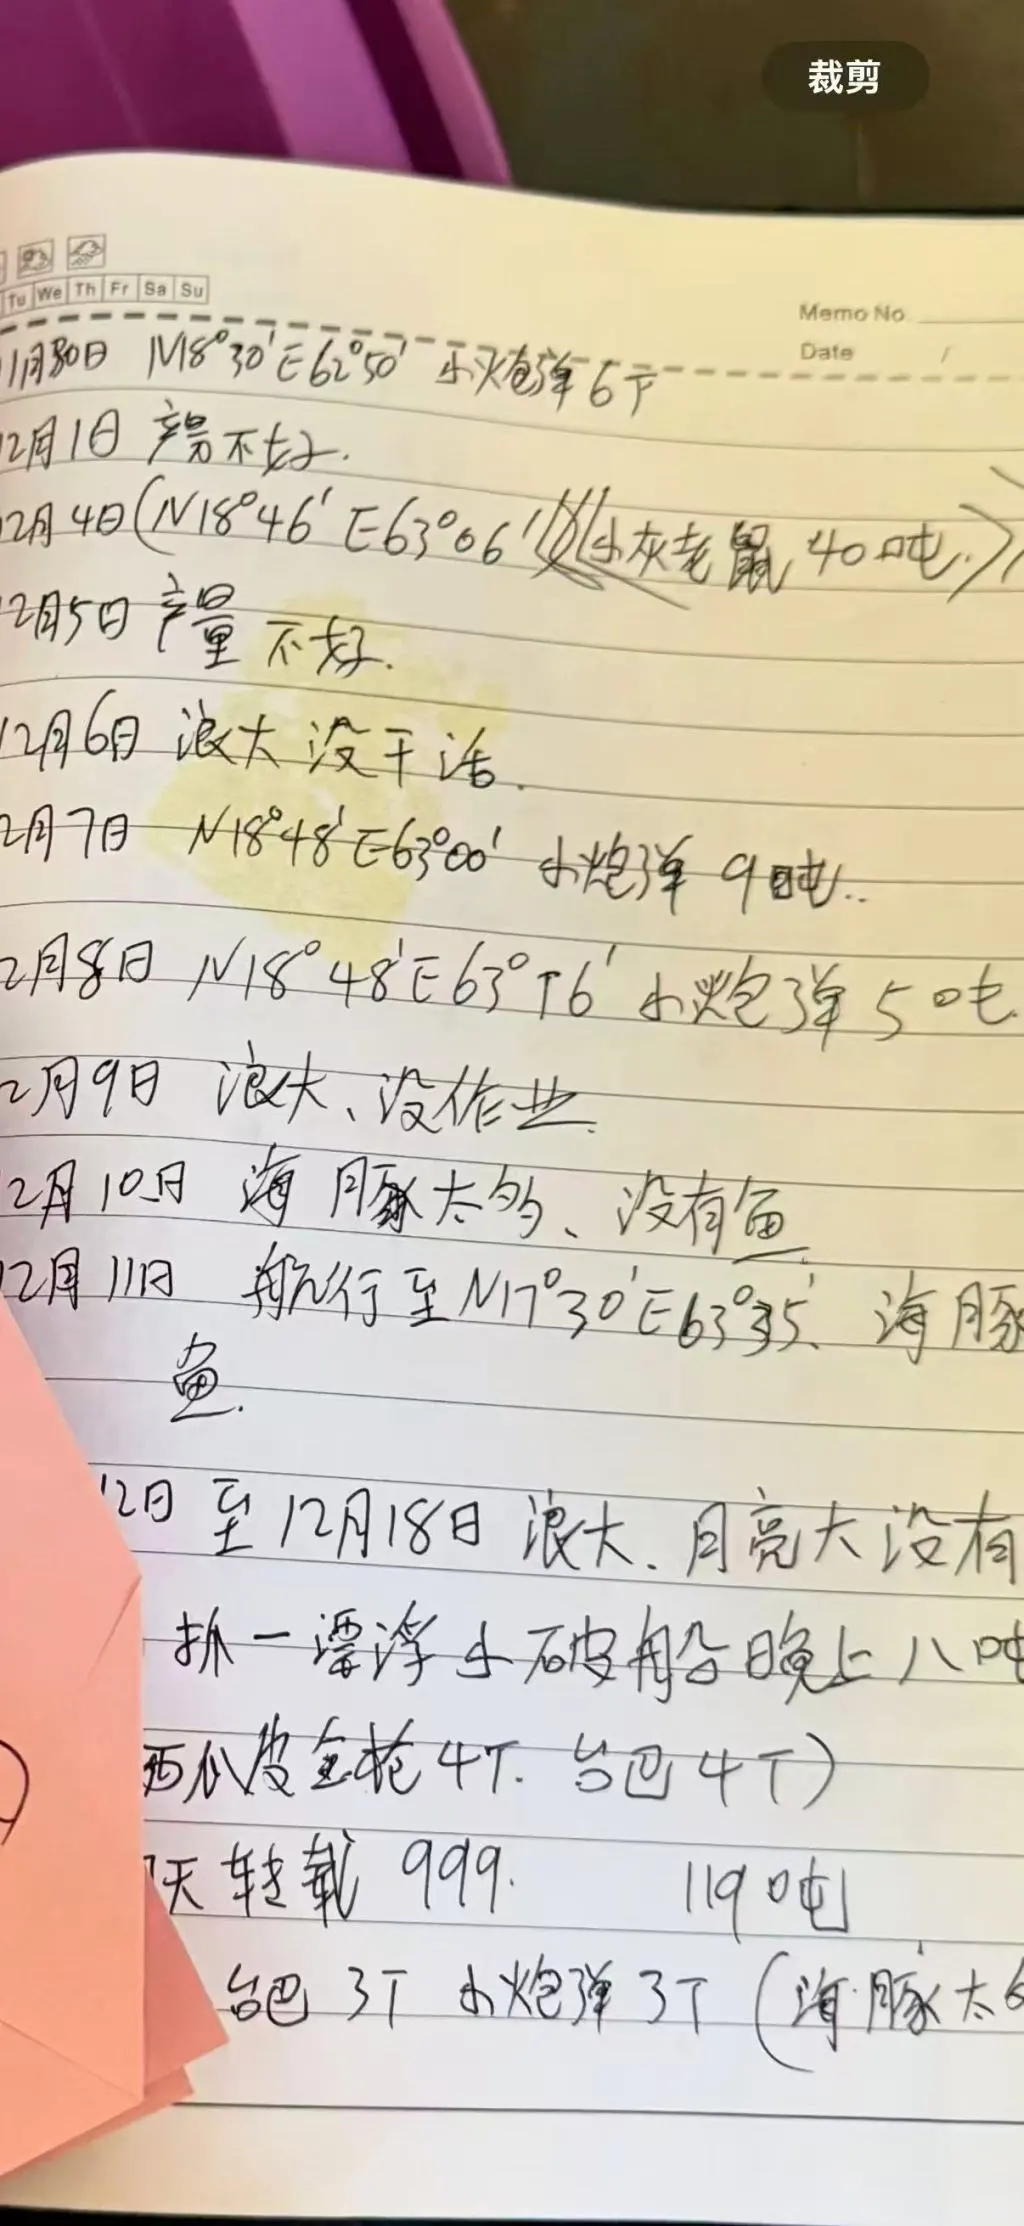 裁剪
Tu We Th Fr Sa Su
Memo No.
Date /
11月30日 N18°30′E62°50′ 小炮弹 6T
12月1日 产量不好.
12月4日(N18°46′E63°06′ 小灰老鼠 40吨.)
12月5日 产量不好.
12月6日 浪大没干活.
2月7日 N18°48′E63°00′ 小炮弹 9吨..
2月8日 N18°48′E63°T6′ 小炮弹 5吨.
2月9日 浪大、没作业.
12月10日 海豚太多、没有鱼.
12月11日 航行至N17°30′E63°35′、海豚
鱼.
12日 至12月18日 浪大、月亮大没有
抓一漂浮小破船晚上八吨
西瓜皮金枪4T. 台巴4T)
天转载 999. 119吨
台巴 3T 小炮弹 3T (海豚太多